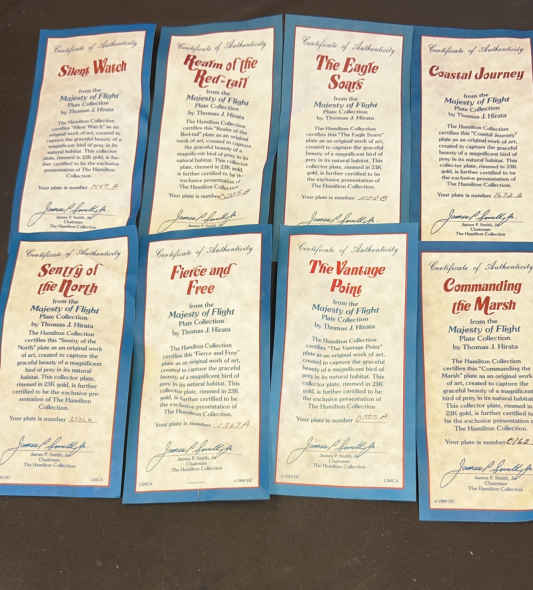 Certificate of Authenticity
Silent Watch
from the
Majesty of Flight
Plate Collection
by Thomas J. Hirata
The Hamilton Collection
certifies "Silent Watch" as an
original work of art, created to
capture the graceful beauty of a
magnificent bird of prey in its
natural habitat. This collector
plate, rimmed in 23K gold, is fur-
ther certified to be the exclusive
presentation of The Hamilton
Collection.
Your plate is number
James P. Smith, Jr.
Chairman
The Hamilton Collection
Certificate of Authenticity
Realm of the
Red-tail
from the
Majesty of Flight
Plate Collection
by Thomas J. Hirata
The Hamilton Collection
certifies this "Realm of the
Red-tail" plate as an original
work of art, created to capture
the graceful beauty of a
magnificent bird of prey in its
natural habitat. This collector
plate, rimmed in 23K gold,
is further certified to be
the exclusive presentation of
The Hamilton Collection.
Your plate is number
James P. Smith, Jr.
Certificate of Authenticity
The Eagle
Soars
from the
Majesty of Flight
Plate Collection
by Thomas J. Hirata
The Hamilton Collection
certifies this "The Eagle Soars"
plate as an original work of art,
created to capture the graceful
beauty of a magnificent bird of
prey in its natural habitat. This
collector plate, rimmed in 23K
gold, is further certified to be
the exclusive presentation of
The Hamilton Collection.
Your plate is number
James P. Smith, Jr.
Certificate of Authenticity
Coastal Journey
from the
Majesty of Flight
Plate Collection
by Thomas J. Hirata
The Hamilton Collection
certifies this "Coastal Journey"
plate as an original work of art,
created to capture the graceful
beauty of a magnificent bird of
prey in its natural habitat. This
collector plate, rimmed in 23K
gold, is further certified to be
the exclusive presentation of
The Hamilton Collection.
Your plate is number
James P. Smith, Jr.
Chairman
The Hamilton Collection
Certificate of Authenticity
Sentry of
the North
from the
Majesty of Flight
Plate Collection
by Thomas J. Hirata
The Hamilton Collection
certifies this "Sentry of the
North" plate as an original work
of art, created to capture the
graceful beauty of a magnificent
bird of prey in its natural
habitat. This collector plate,
rimmed in 23K gold, is further
certified to be the exclusive pre-
sentation of The Hamilton
Collection.
Your plate is number
James P. Smith, Jr.
Chairman
The Hamilton Collection
Certificate of Authenticity
Fierce and
Free
from the
Majesty of Flight
Plate Collection
by Thomas J. Hirata
The Hamilton Collection
certifies this "Fierce and Free"
plate as an original work of art,
created to capture the graceful
beauty of a magnificent bird of
prey in its natural habitat. This
collector plate, rimmed in 23K
gold, is further certified to be
the exclusive presentation of
The Hamilton Collection.
Your plate is number
James P. Smith, Jr.
Chairman
The Hamilton Collection
Certificate of Authenticity
The Vantage
Point
from the
Majesty of Flight
Plate Collection
by Thomas J. Hirata
The Hamilton Collection
certifies "The Vantage Point"
plate as an original work of art,
created to capture the graceful
beauty of a magnificent bird of
prey in its natural habitat. This
collector plate, rimmed in 23K
gold, is further certified to be
the exclusive presentation of
The Hamilton Collection.
Your plate is number
James P. Smith, Jr.
Chairman
The Hamilton Collection
Certificate of Authenticity
Commanding
the Marsh
from the
Majesty of Flight
Plate Collection
by Thomas J. Hirata
The Hamilton Collection
certifies this "Commanding the
Marsh" plate as an original work
of art, created to capture the
graceful beauty of a magnificent
bird of prey, in its natural habitat.
This collector plate, rimmed in
23K gold, is further certified to
be the exclusive presentation of
The Hamilton Collection.
Your plate is number
James P. Smith, Jr.
Chairman
The Hamilton Collection